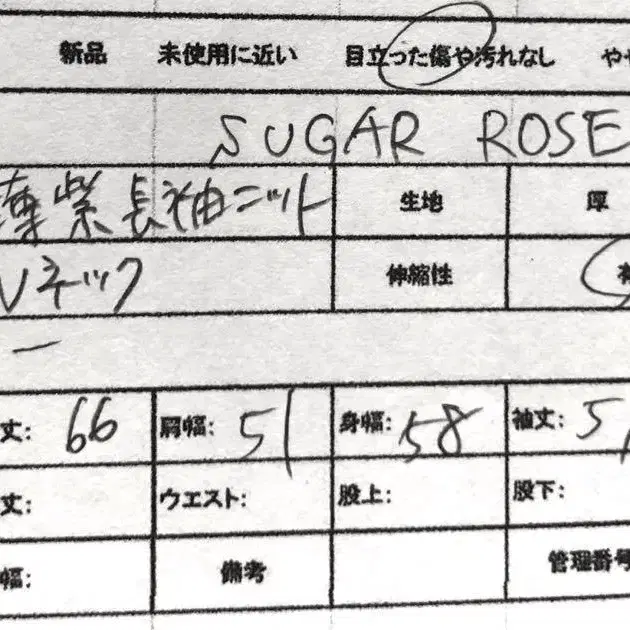 新品 未使用に近い 目立った傷や汚れなし や
SUGAR ROSE
薄紫長袖ニット 生地 厚
Vネック 伸縮性
ー
丈: 66 肩幅: 51 身幅: 58 袖丈: 5
丈: ウエスト: 股上: 股下:
幅: 備考 管理番号